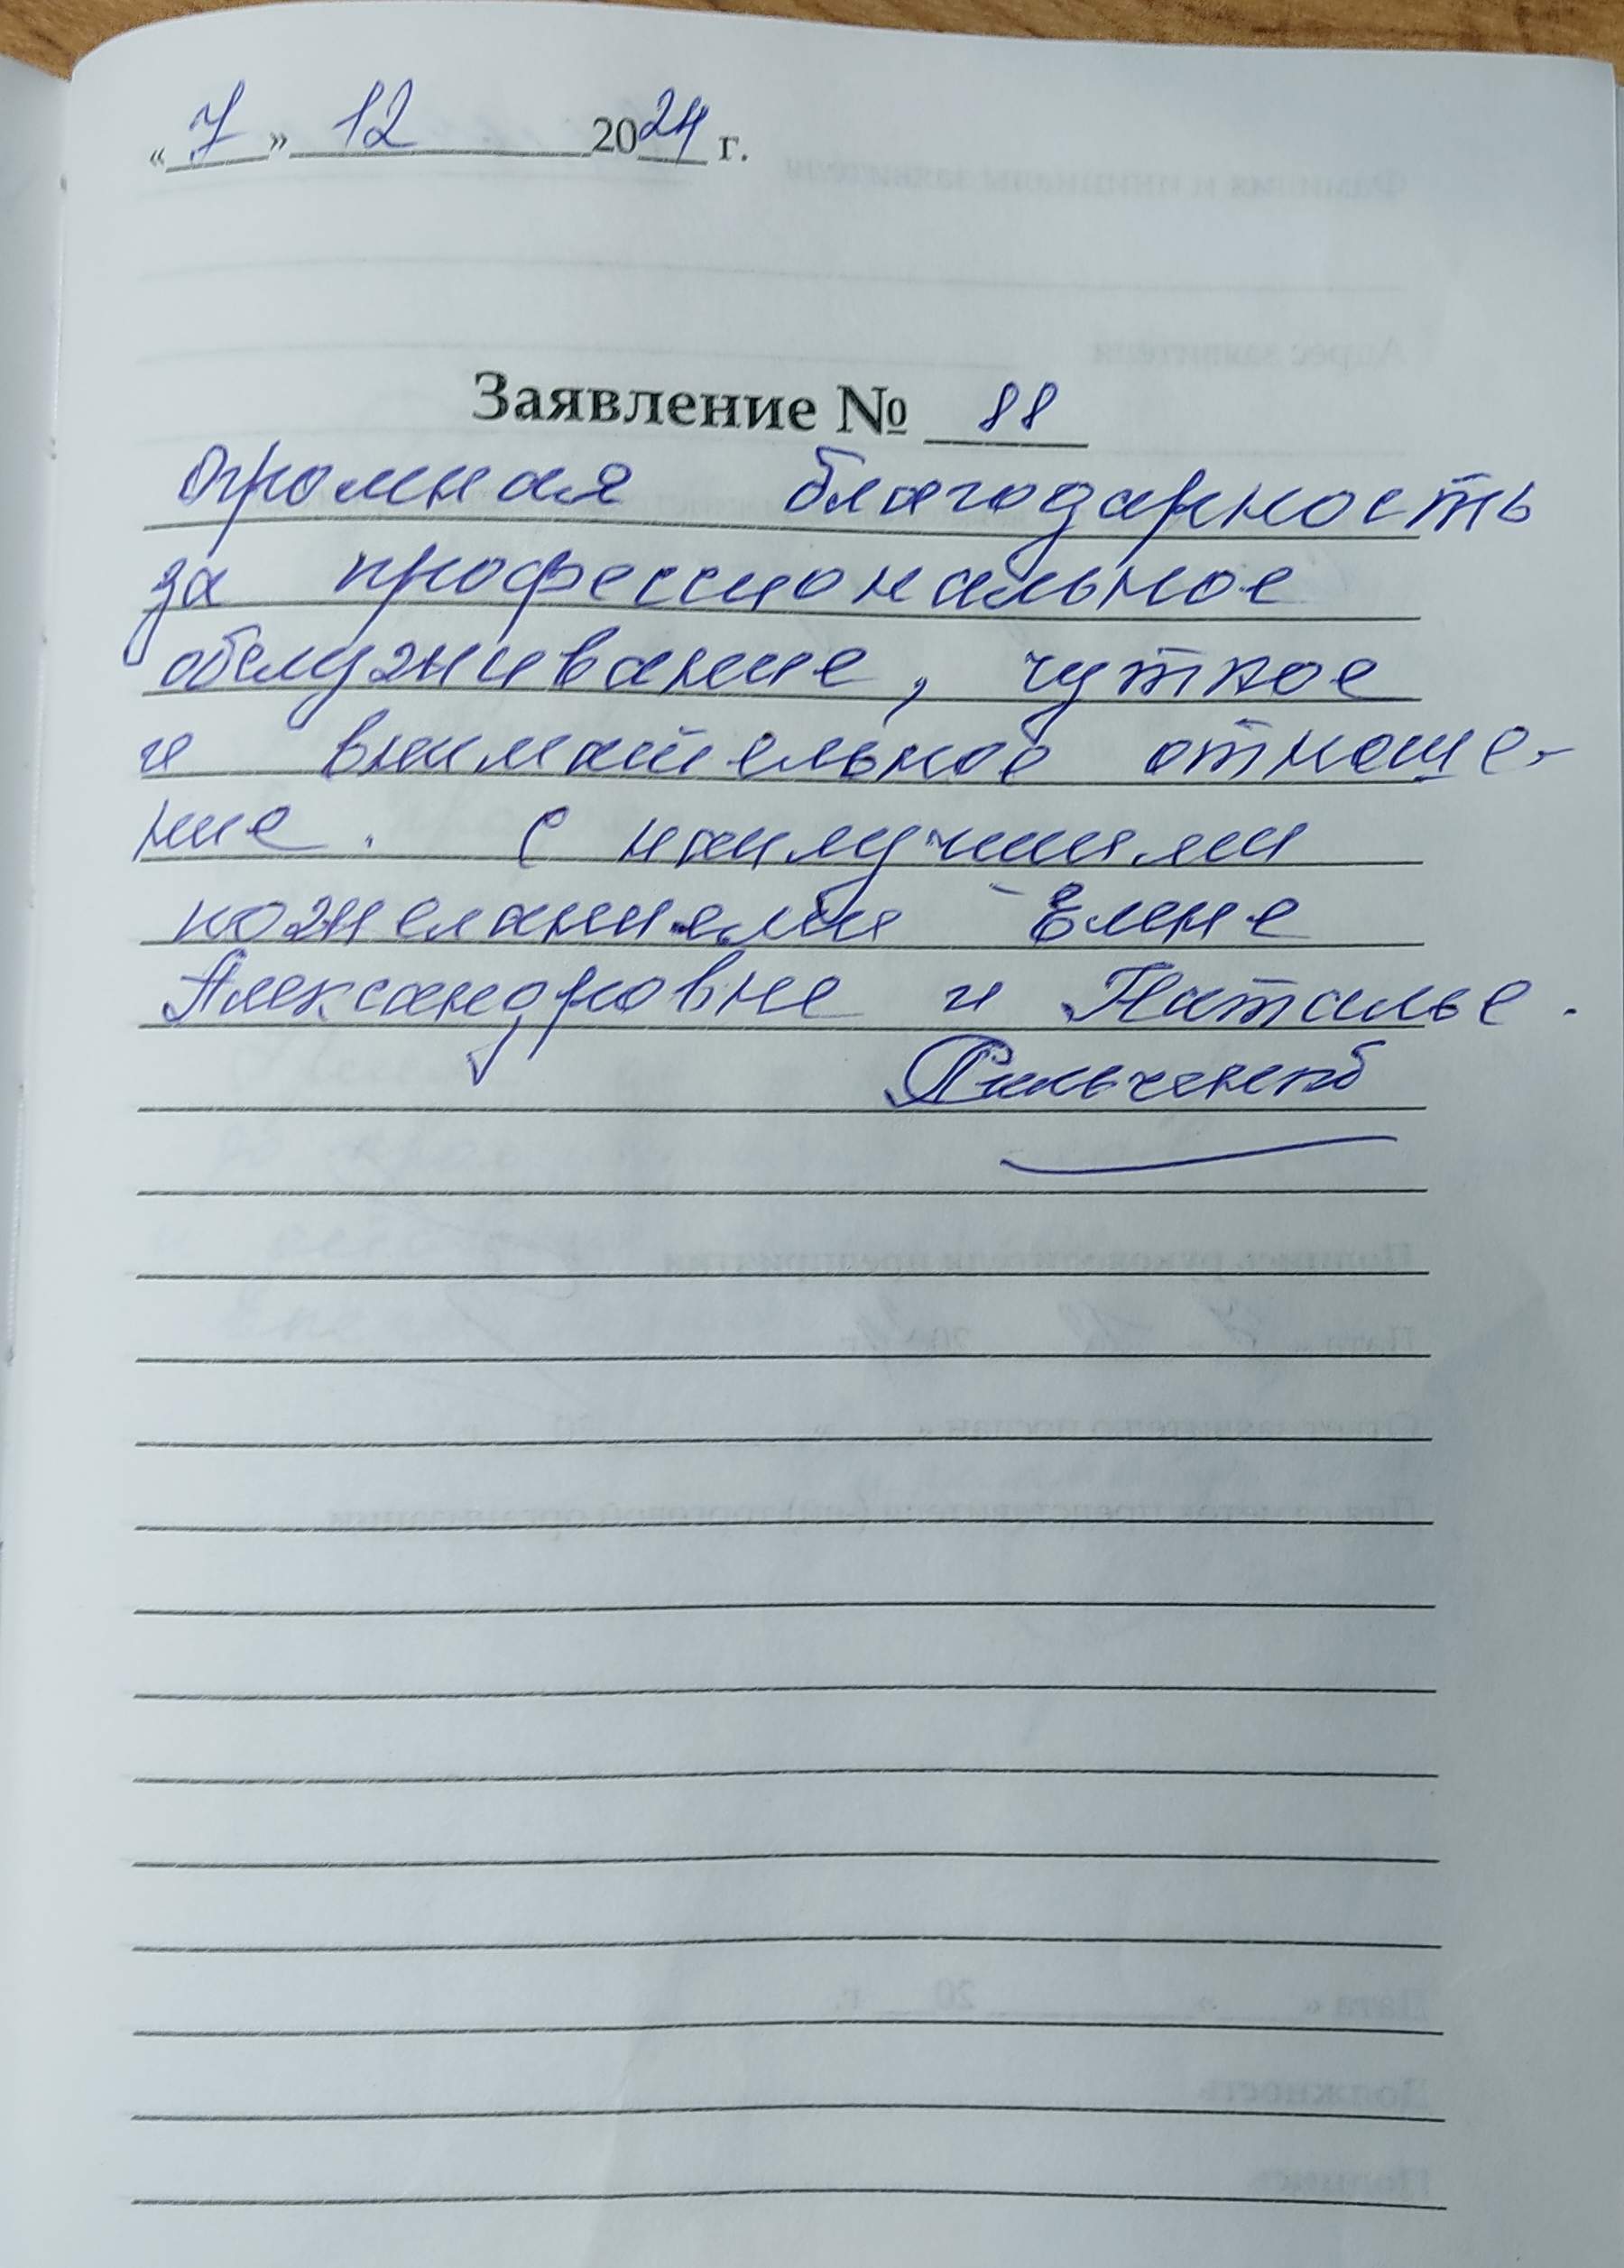 «7» 12 2024 г.
Заявление № 88
Огромная благодарность
за профессиональное
обслуживание, чуткое
и внимательное отноше-
ние. С наилучшими
пожеланиями Елене
Александровне и Наталье.